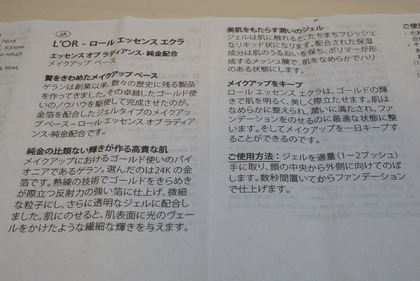 JA
L'OR - ロール エッセンス エクラ
エッセンス オブ ラディアンス- 純金配合
メイクアップ ベース
贅をきわめたメイクアップ ベース
ゲランは創業以来、数々の歴史に残る製品
を作ってきました。その卓越したゴールド使
いのノウハウを駆使して完成させたのが、
金箔を配合したジェルタイプのメイクアッ
プ ベース – ロール エッセンス オブ ラディ
アンス-純金配合です。
純金の比類ない輝きが作る高貴な肌
メイクアップにおけるゴールド使いのパイ
オニアであるゲラン。選んだのは24K の金
箔です。熟練の技術でゴールドをきらめき
が際立つ反射力の強い箔に仕上げ、微細
な粒子にし、さらに透明なジェルに配合し
ました。肌にのせると、肌表面に光のヴェー
ルをかけたような繊細な輝きを与えます。
美肌をもたらす潤いのジェル
ジェルは肌に触れるとたちまちフレッシュ
なリキッド状になります。配合された保湿
成分は肌のうるおいを保ち、ポリマーが形
成するメッシュ膜で、肌をなめらかでハリ
のある状態にします。
メイクアップをキープ
ロール エッセンス エクラは、ゴールドの輝
きで肌を明るく、美しく際立たせます。肌は
なめらかに整えられ、潤いに満たされ、ファ
ンデーションをのせるのに最適な状態に整
います。そしてメイクアップを一日キープす
ることができるのです。
ご使用方法：ジェルを適量 (1–2プッシュ)
手に取り、顔の中央から外側に向けてのば
します。数秒間置いてからファンデーション
で仕上げます。